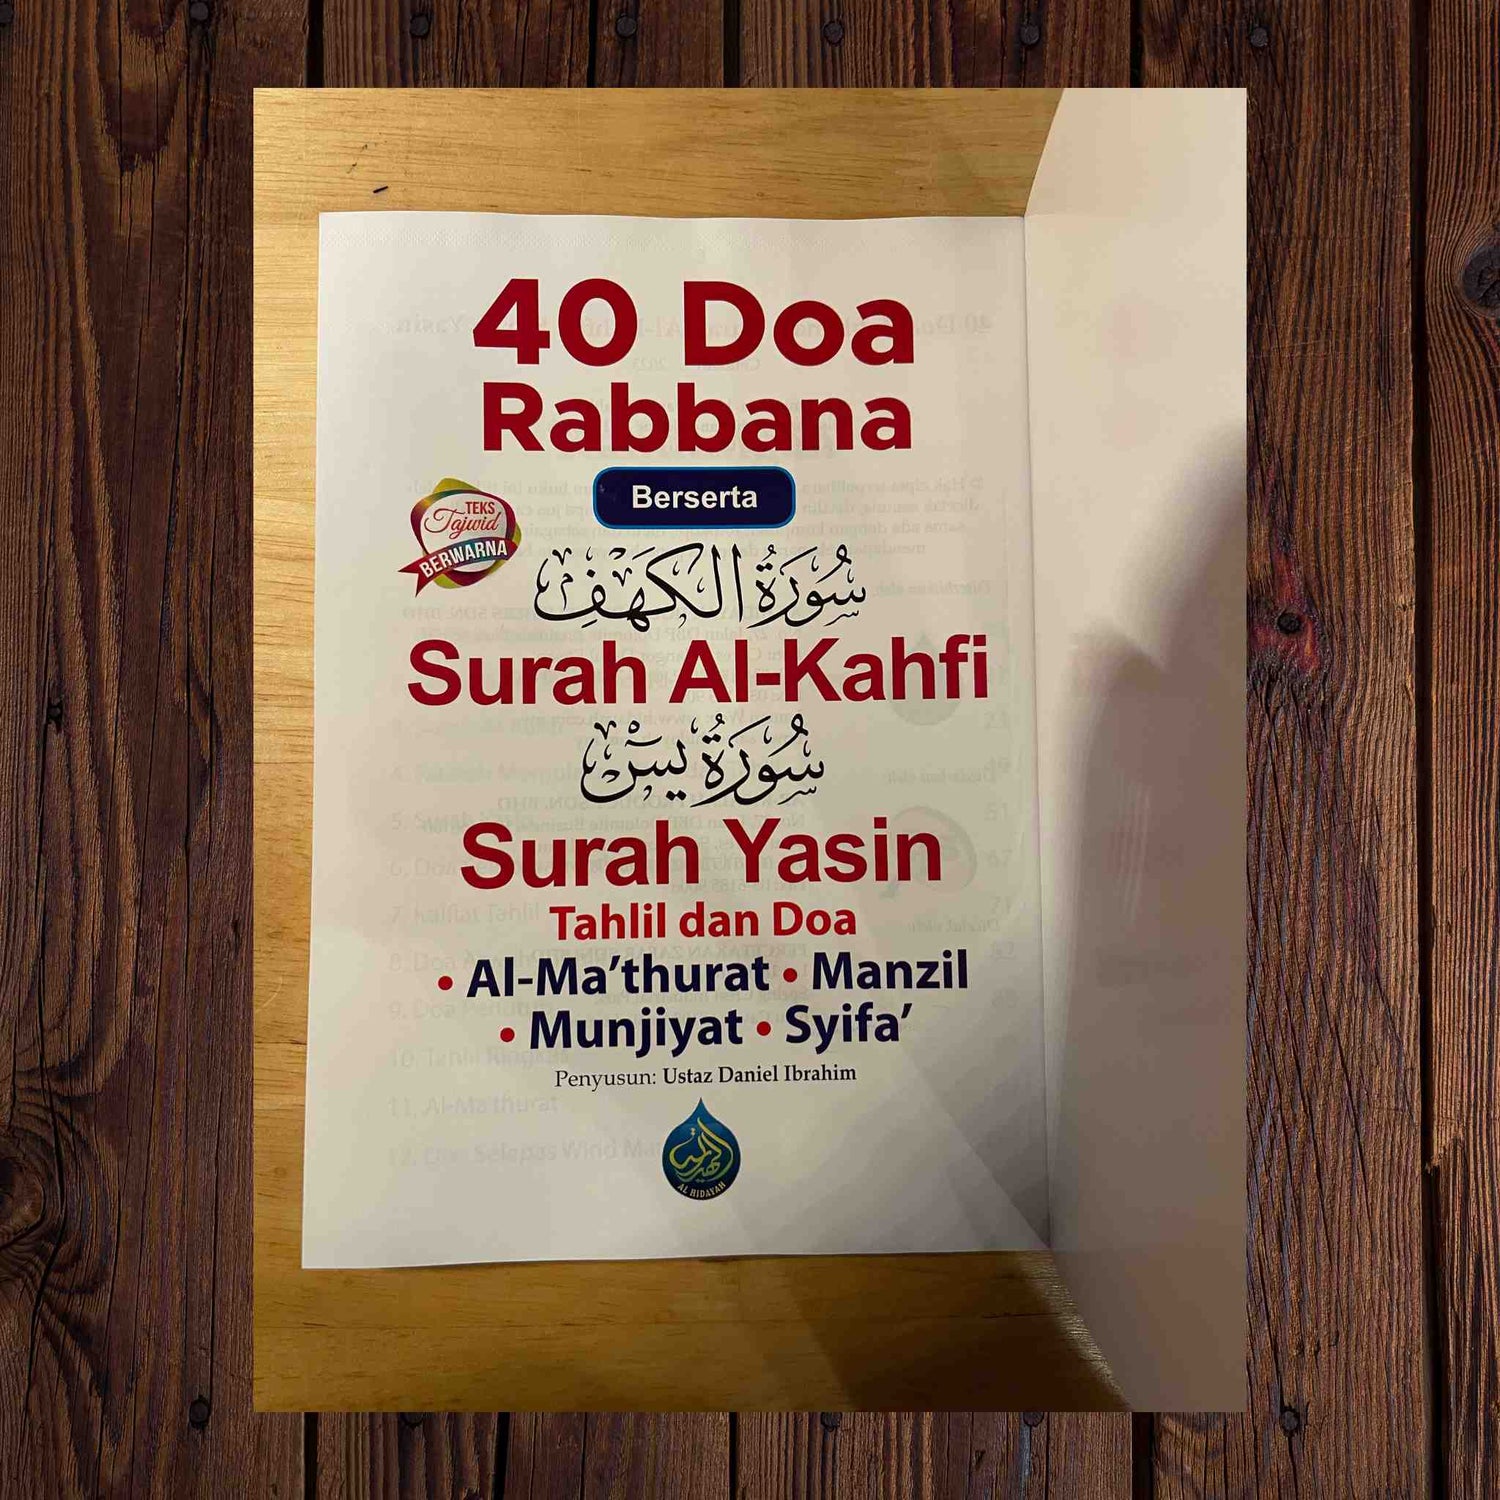 40 Doa
Rabbana
Berserta
TEKS
Tajwid
BERWARNA
سُورَةُ الْكَهْفِ
Surah Al-Kahfi
سُورَةُ يٰسٓ
Surah Yasin
Tahlil dan Doa
• Al-Ma’thurat • Manzil
• Munjiyat • Syifa’
Penyusun: Ustaz Daniel Ibrahim
الهداية
AL HIDAYAH